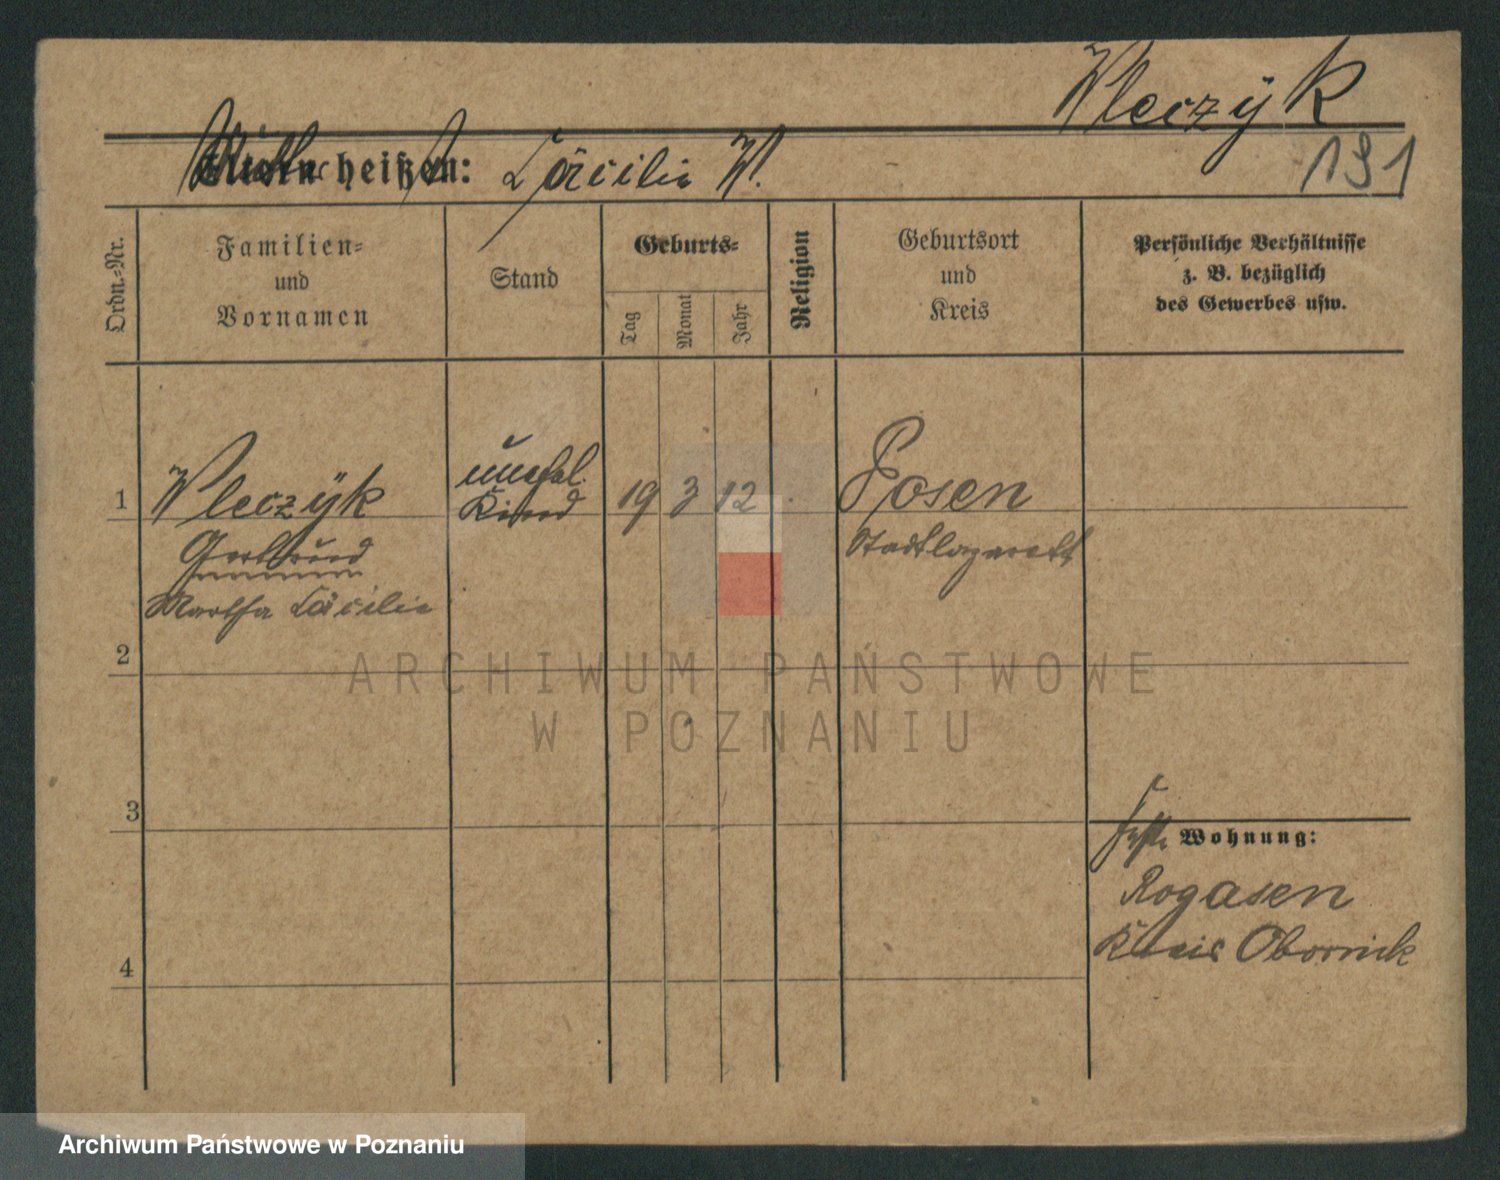 Wleczÿk
191
Eltern heißen: Cäcilie W.
Ordn.-Nr.
Familien-
und
Vornamen
Stand
Geburts-
Tag
Monat
Jahr
Religion
Geburtsort
und
Kreis
Persönliche Verhältnisse
z. B. bezüglich
des Gewerbes usw.
1 Wleczÿk unehel. Kind 19 3 12 Posen
Gertrud Stadtlazarett
Martha Cäcilie
2
3
Wohnung:
Rogasen
Kreis Obornik
4
ARCHIWUM PAŃSTWOWE
W POZNANIU
Archiwum Państwowe w Poznaniu